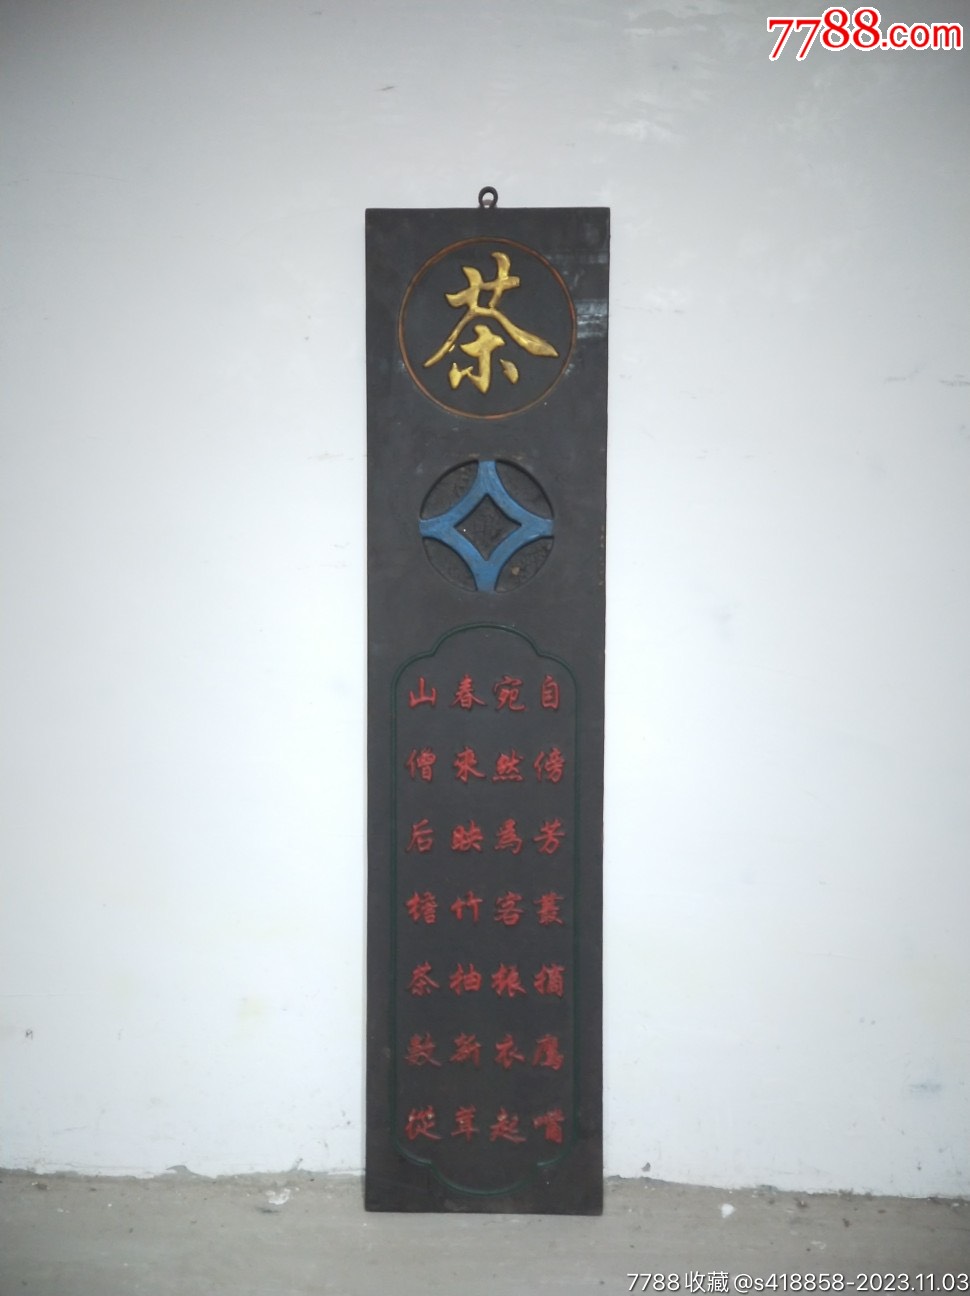 7788.com
茶
山僧后檐茶数從
春来映竹抽新茸
宛然為客振衣起
自傍芳叢摘鹰嘴
7788收藏@s418858-2023.11.03